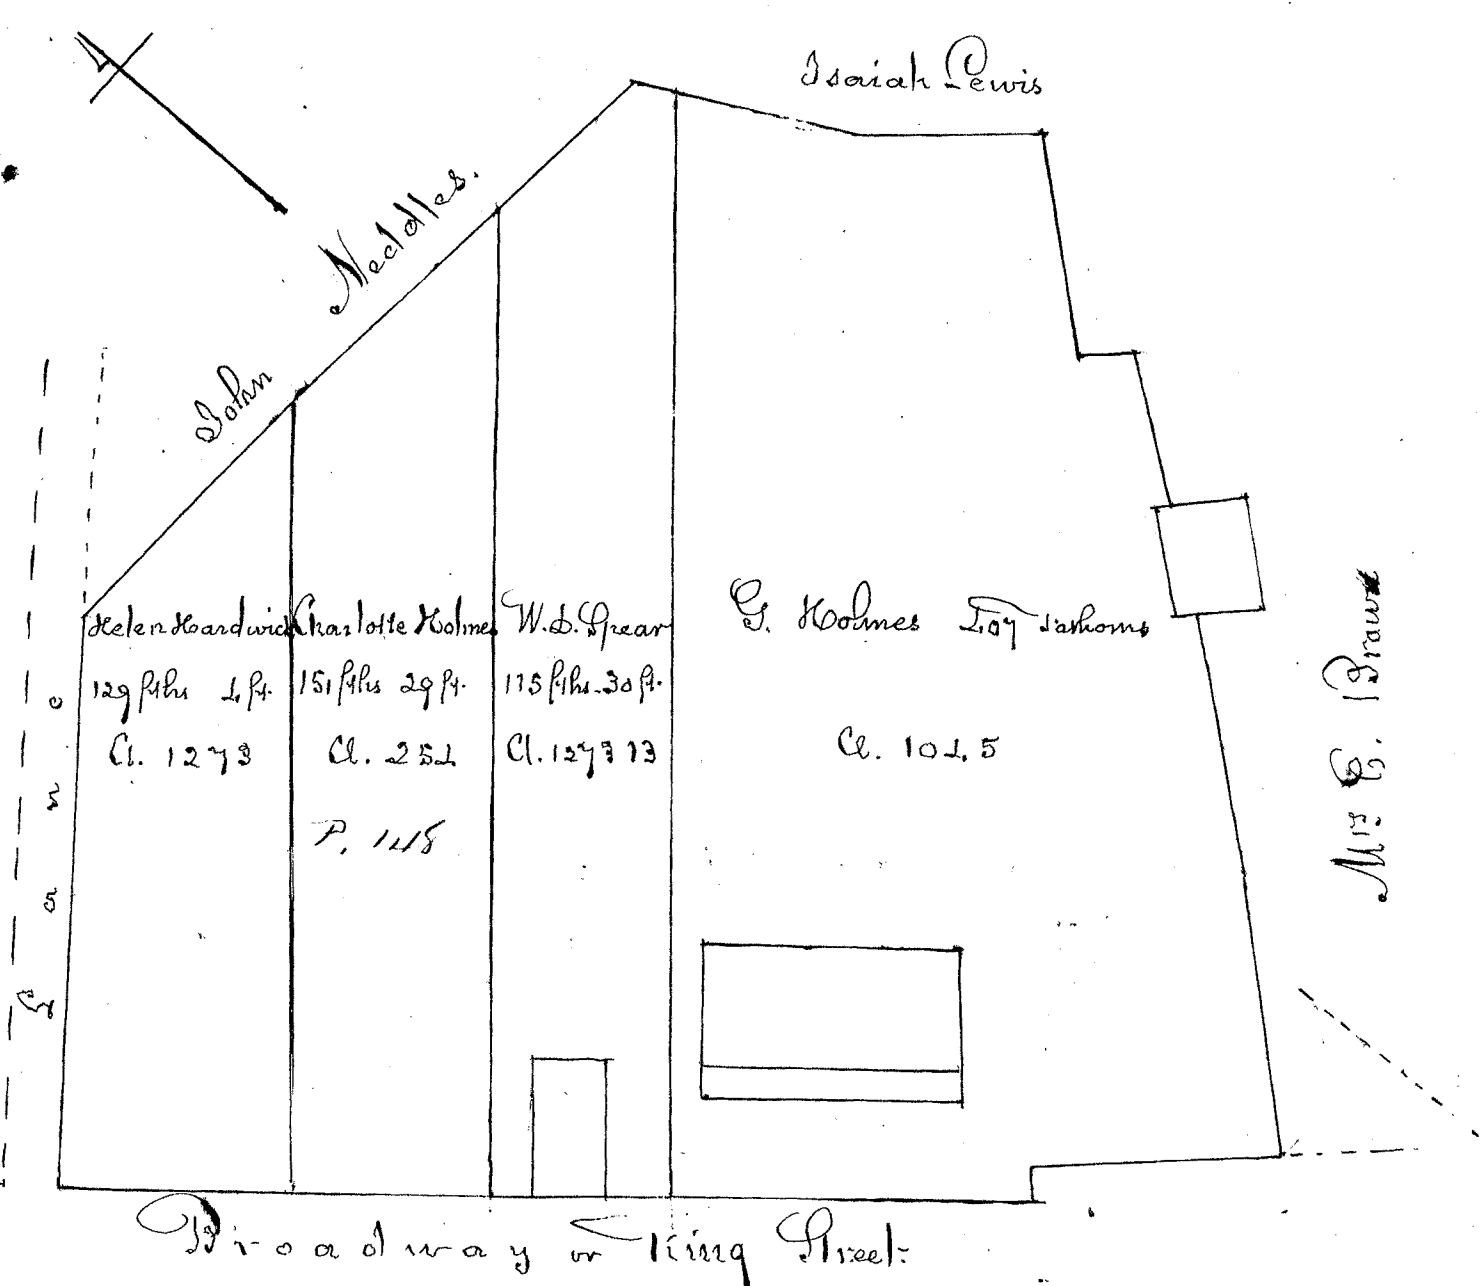 Isaiah Lewis
John Neddles.
Helen Hardwick
129 fths 4 ft.
Cl. 1273
Charlotte Holmes
151 fths 29 ft.
Cl. 254
P. 148
W. D. Spear
115 fths. 30 ft.
Cl. 1273 13
G. Holmes 407 Fathoms
Cl. 1045
Mrs E. Brown
Lane
Broadway or King Street